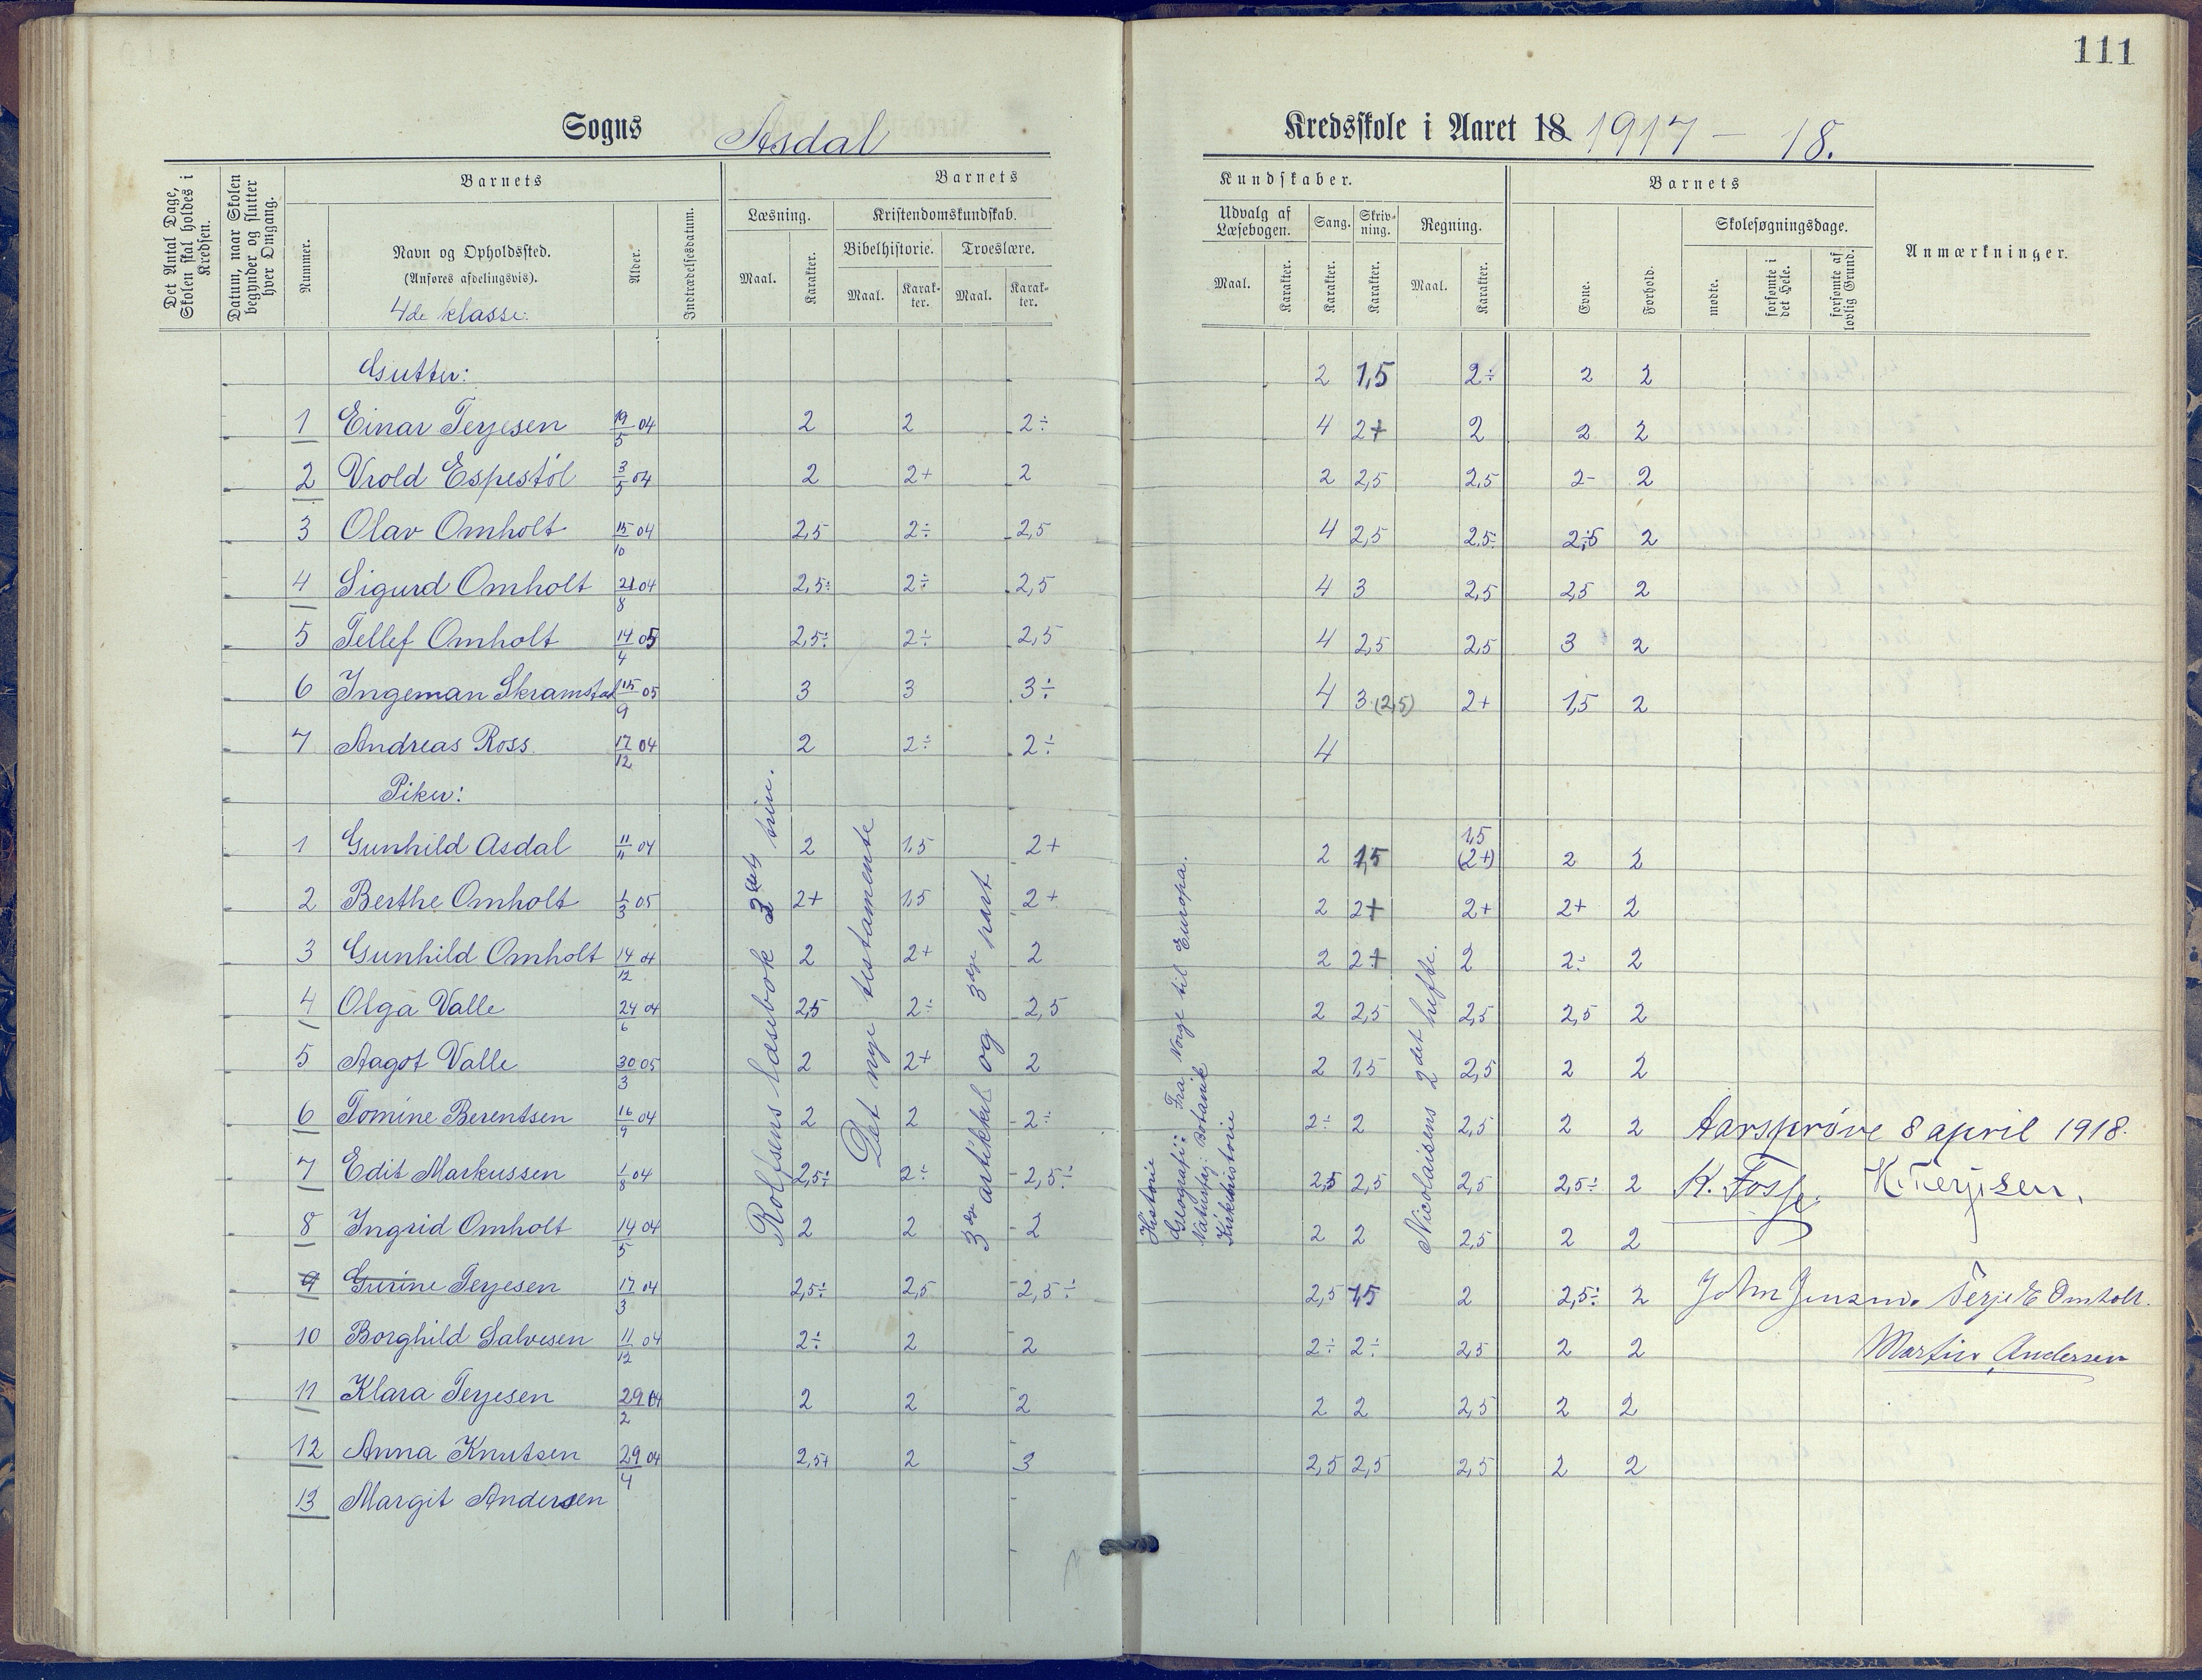 111
Sogns Asdal Kredsskole i Aaret 18 1917 – 18.
Det Antal Dage, Skolen skal holdes i Kredsen.
Datum, naar Skolen begynder og slutter hver Omgang.
Barnets
Nummer.
Navn og Opholdssted.
(Anføres afdelingsvis).
4de klasse:
Alder.
Indtrædelsesdatum.
Barnets
Læsning.
Maal.
Karakter.
Kristendomskundskab.
Bibelhistorie.
Maal.
Karakter.
Troeslære.
Maal.
Karakter.
Kundskaber.
Udvalg af Læsebogen.
Maal.
Karakter.
Sang.
Karakter.
Skrivning.
Karakter.
Regning.
Maal.
Karakter.
Barnets
Evne.
Forhold.
Skolesøgningsdage.
mødte.
forsømte i det Hele.
forsømte af lovlig Grund.
Anmærkninger.
Gutter: 2 1,5 2÷ 2 2
1 Einar Terjesen 19/5 04 2 2 2÷ 4 2+ 2 2 2
2 Vrold Espestøl 3/5 04 2 2+ 2 2 2,5 2,5 2- 2
3 Olav Omholt 15/10 04 2,5 2÷ 2,5 4 2,5 2,5÷ 2,5 2
4 Sigurd Omholt 21/8 04 2,5÷ 2÷ 2,5 4 3 2,5 2,5 2
5 Tellef Omholt 14/4 05 2,5÷ 2÷ 2,5 4 2,5 2,5 3 2
6 Ingeman Skramstad 15/9 05 3 3 3÷ 4 3 (2,5) 2+ 1,5 2
7 Andreas Ross 17/12 04 2 2÷ 2÷ 4
Piker:
1 Gunhild Asdal 11/11 04 2 1,5 2+ 2 1,5 1,5 (2+) 2 2
2 Berthe Omholt 1/3 05 2+ 1,5 2+ 2 2+ 2+ 2+ 2
3 Gunhild Omholt 14/12 04 2 2+ 2 2 2+ 2 2÷ 2
4 Olga Valle 24/6 04 2,5 2÷ 2,5 2 2,5 2,5 2,5 2
5 Aagot Valle 30/3 05 2 2+ 2 2 1,5 2,5 2 2
6 Tomine Berentsen 16/9 04 2 2 2÷ 2÷ 2 2,5 2 2 Aarsprøve 8 april 1918.
7 Edit Markussen 1/8 04 2,5÷ 2÷ 2,5÷ 2,5 2,5 2,5 2,5÷ 2 K. Fosse. K. Terjesen.
8 Ingrid Omholt 14/5 04 2 2 2 2 2 2,5 2 2
9 Gurine Terjesen 17/3 04 2,5÷ 2,5 2,5÷ 2,5 1,5 2 2,5÷ 2 John Jensen. Terje E Omholt.
10 Borghild Salvesen 11/12 04 2÷ 2 2 2÷ 2÷ 2,5 2 2 Martin Andersen
11 Klara Terjesen 29/2 04 2 2 2 2 2 2,5 2 2
12 Anna Knutsen 29/4 04 2,5+ 2 3 2,5 2,5 2,5 2 2
13 Margit Andersen
Rolfsens læsebok 3det trin.
Det nye testamente
3de artikkel og 3dje part
Historie
Geografi: Fra Norge til Europa.
Naturfag: Botanik
Kirkehistorie
Nicolaisens 2det hefte.